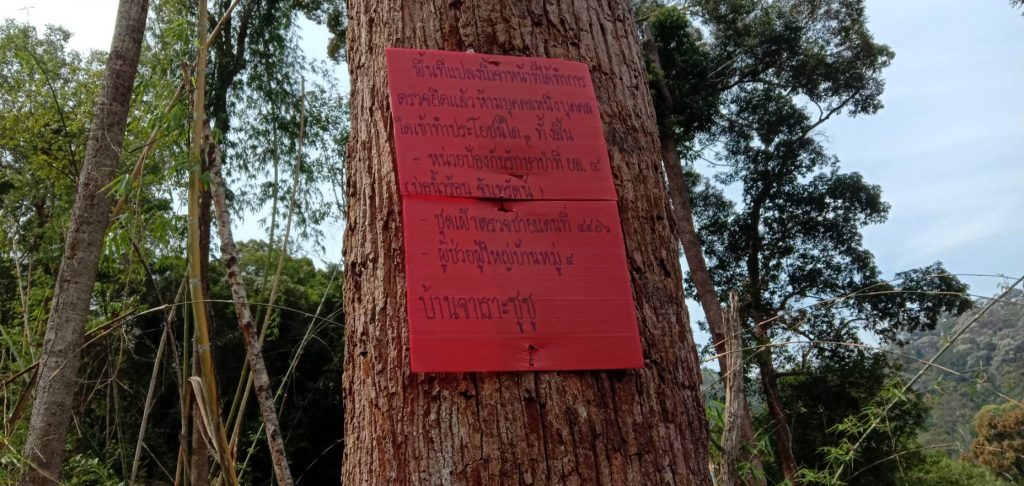 พื้นที่แปลงนี้เจาหน้าที่ได้ทำการ
ตรวจยึดแล้วห้ามบุคคลหนึ่งบุคคล
ใดเข้าทำประโยชน์ใด ๆ ทั้งสิ้น
- หน่วยป้องกันรักษาป่าที่ ยล. ๔
(บ่อน้ำร้อน จันทรัตน์)
- ชุดเฝ้าตรวจชายแดนที่ ๔๔๐๖
- ผู้ช่วยผู้ใหญ่บ้านหมู่ ๔
บ้านจาเราะซูซู